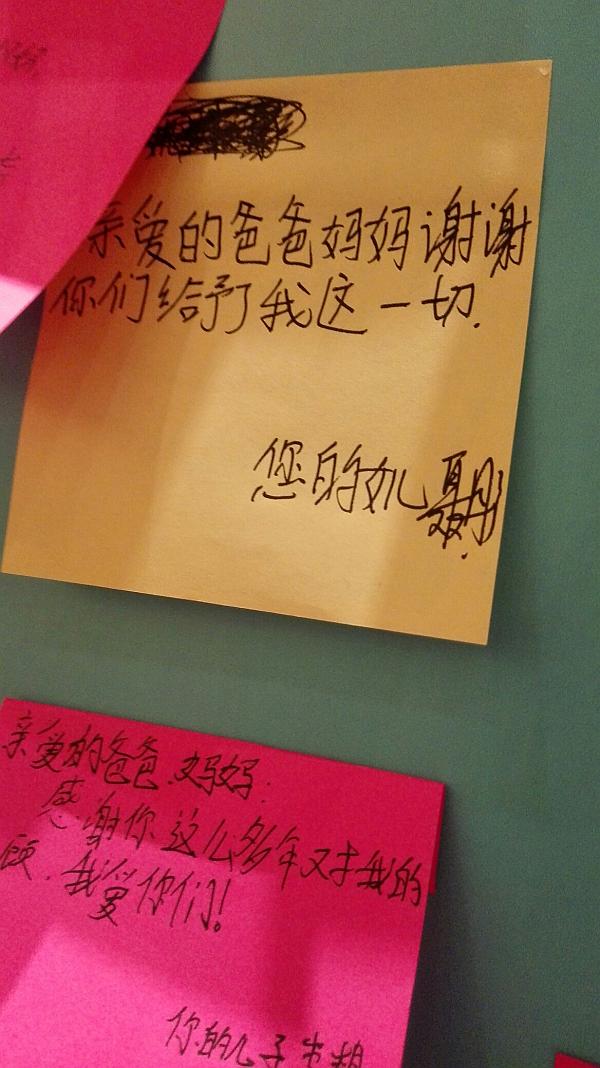 亲爱的爸爸妈妈谢谢
你们给予了我这一切.
您的女儿
亲爱的爸爸.妈妈:
感谢你这么多年对我的
顾.我爱你们!
你的儿子